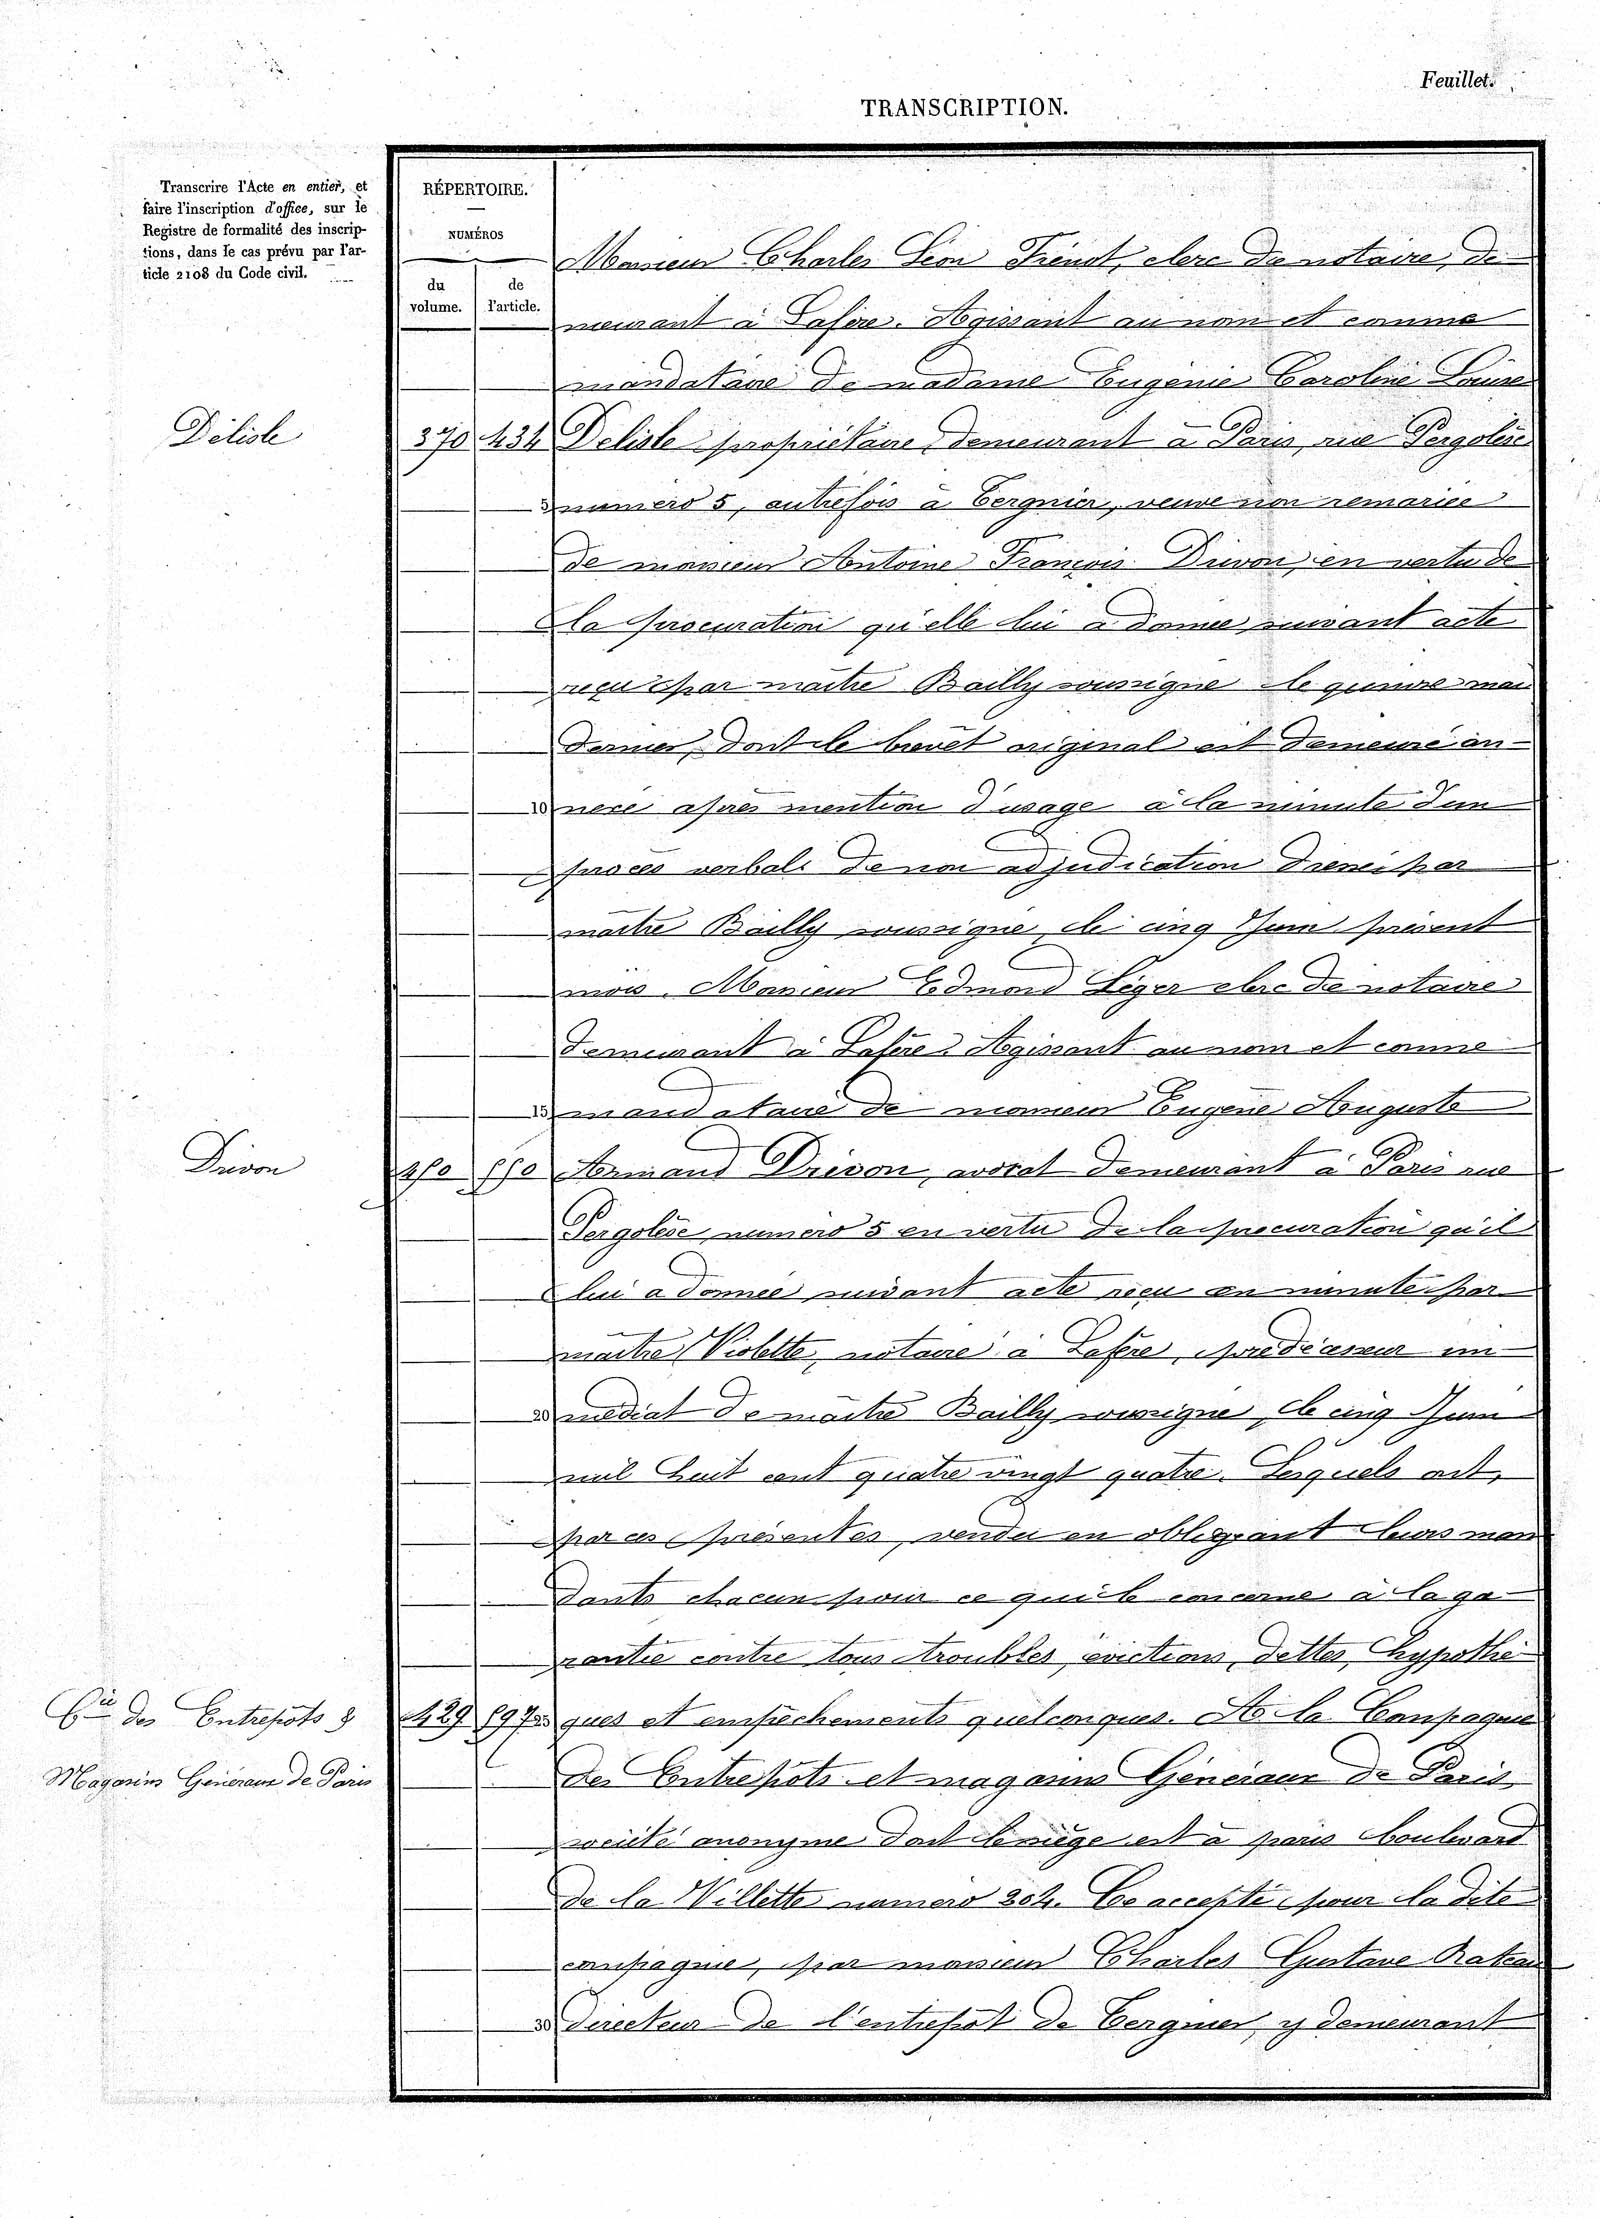 Feuillet.
TRANSCRIPTION.
Transcrire l'Acte en entier, et
faire l'inscription d'office, sur le
Registre de formalité des inscrip-
tions, dans le cas prévu par l'ar-
ticle 2108 du Code civil.
RÉPERTOIRE.
NUMÉROS
du volume.
de l'article.
Monsieur Charles Léon clerc de notaire, de-
meurant à Lafère. Agissant au nom et comme
mandataire de madame Eugénie Caroline Louise
Delisle
370 434 Delisle propriétaire, demeurant à Paris, rue Pergolèse
5 numéro 5, autrefois à Tergnier, veuve non remariée
de monsieur Antoine François Drivon, en vertu de
la procuration qu'elle lui a donnée, suivant acte
reçu par maître Bailly soussigné le quinze mai
dernier, dont le brevet original est demeuré an-
10 nexé après mention d'usage à la minute d'un
procès verbal de non adjudication dressé par
maître Bailly soussigné, le cinq Juin présent
mois. Monsieur Edmond Léger clerc de notaire
demeurant à Lafère. Agissant au nom et comme
15 mandataire de monsieur Eugène Auguste
Drivon
Armand Drivon, avocat demeurant à Paris rue
Pergolèse, numéro 5 en vertu de la procuration qu'il
lui a donnée suivant acte reçu en minute par
maître Violette, notaire à Lafère, prédécesseur im-
20 médiat de maître Bailly soussigné, le cinq Juin
mil huit cent quatre vingt quatre. Lesquels ont,
par ces présentes, vendu en obligeant leurs man
dants chacun pour ce qui le concerne à la ga-
rantie contre tous troubles, évictions, dettes, hypothè-
Cie des Entrepôts &
Magasins Généraux de Paris
429 897 25 ques et empêchements quelconques. A la Compagnie
des Entrepôts et magasins Généraux de Paris,
société anonyme dont le siège est à paris boulevard
de la Villette numéro 204. Ce accepté pour la dite
compagnie, par monsieur Charles Gustave Rateau
30 directeur de l'entrepôt de Tergnier, y demeurant